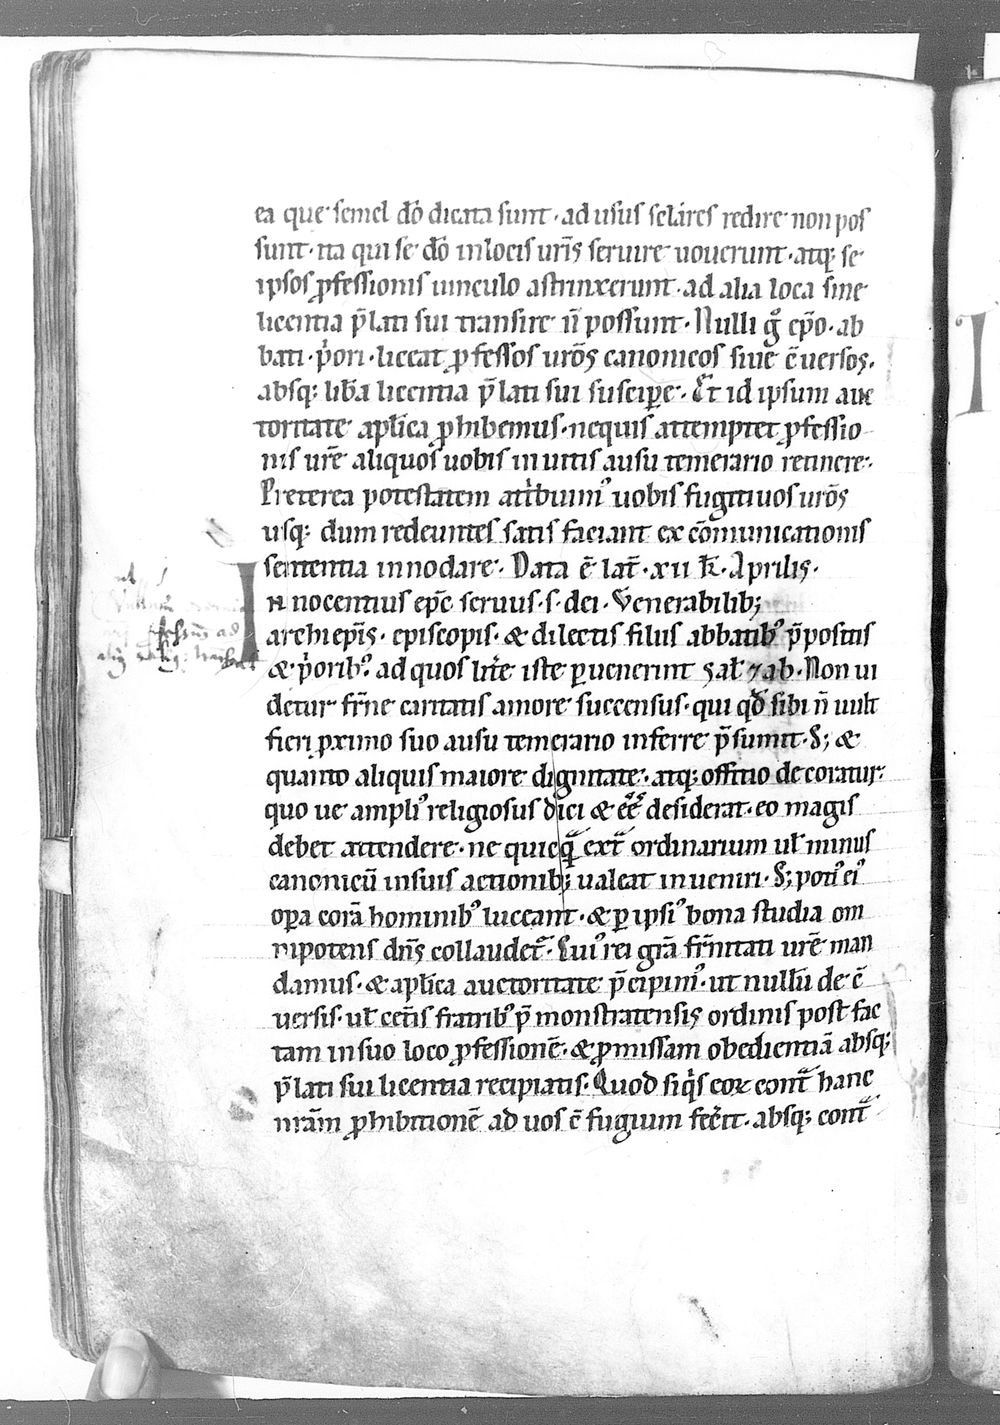 ea que semel dō dicata sunt · ad usus seclāres redire non pos
sunt · ita qui se dō in locis urīs seruire uouerunt · atq; se
ipsos ꝓfessionis uinculo astrinxerunt · ad alia loca sine
licentia p̄lati sui transire ñ possunt · Nulli gͦ ep̄o · ab
bati · p̓ori · liceat ꝓfessos urōs canonicos siue ↄ̄uersos ·
absq; libĺa licentia p̄lati sui suscipe̱ · Et id ipsum auc
toritate ap̄lica ꝓhibemus · nequis attemptet ꝓfessio
nis urē aliquos uobis inuitis ausu temerario retinere ·
Preterea potestatem at̓buimꝰ uobis fugitiuos urōs
usq; dum redeuntes satis faciant excōmunicationis
sententia innodare · Data ē lat̄ · xii kl̄ · Aprilis ·
Innocentius ep̄c seruus · s · dei · Venerabilib;
archiepīs · episcopis · & dilectis filiis abbatibꝰ p̄positis
& p̓oribꝰ · ad quos lr̄e iste ꝑuenerint sal̄ ⁊ ab · Non ui
detur fr̄ne caritatis amore succensus · qui qd̄ sibi ñ uult
fieri ꝓximo suo ausu temerario inferre p̄sumit · S; &
quanto aliquis maiore dignitate · atq; offitio decoratur ·
quo ue ampliꝰ religiosus dici & eē desiderat · eo magis
debet attendere · ne quicqᷓ extᷓ ordinarium ul̄ minus
canonicū in suis actionib; ualeat inueniri · S; potiꝰ eiꝰ
oꝑa corā hominibꝰ luceant · & ꝑ ipsiꝰ bona studia om
nipotens dn̄s collaudetᷣ · Huiꝰ rei grā fr̄nitati urē man
damus · & ap̄lica auctoritate p̄cipimꝰ · ut nullū de ↄ̄
uersis · ul̄ cet̄is fratribꝰ p̄monstratensis ordinis post fac
tam in suo loco ꝓfessionē · & ꝓmissam obedientiā absq;
p̄lati sui licentia recipiatis · Quod siq̓s eoꝝ contᷓ hanc
nrām ꝓhibitionē ad uos ↄ̄fugium fec̓it · absq; contᷓ